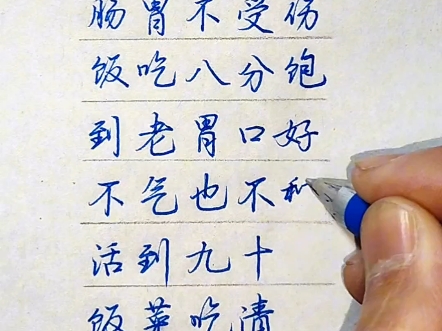 肠胃不受伤
饭吃八分饱
到老胃口好
不气也不
活到九十
饭菜吃清